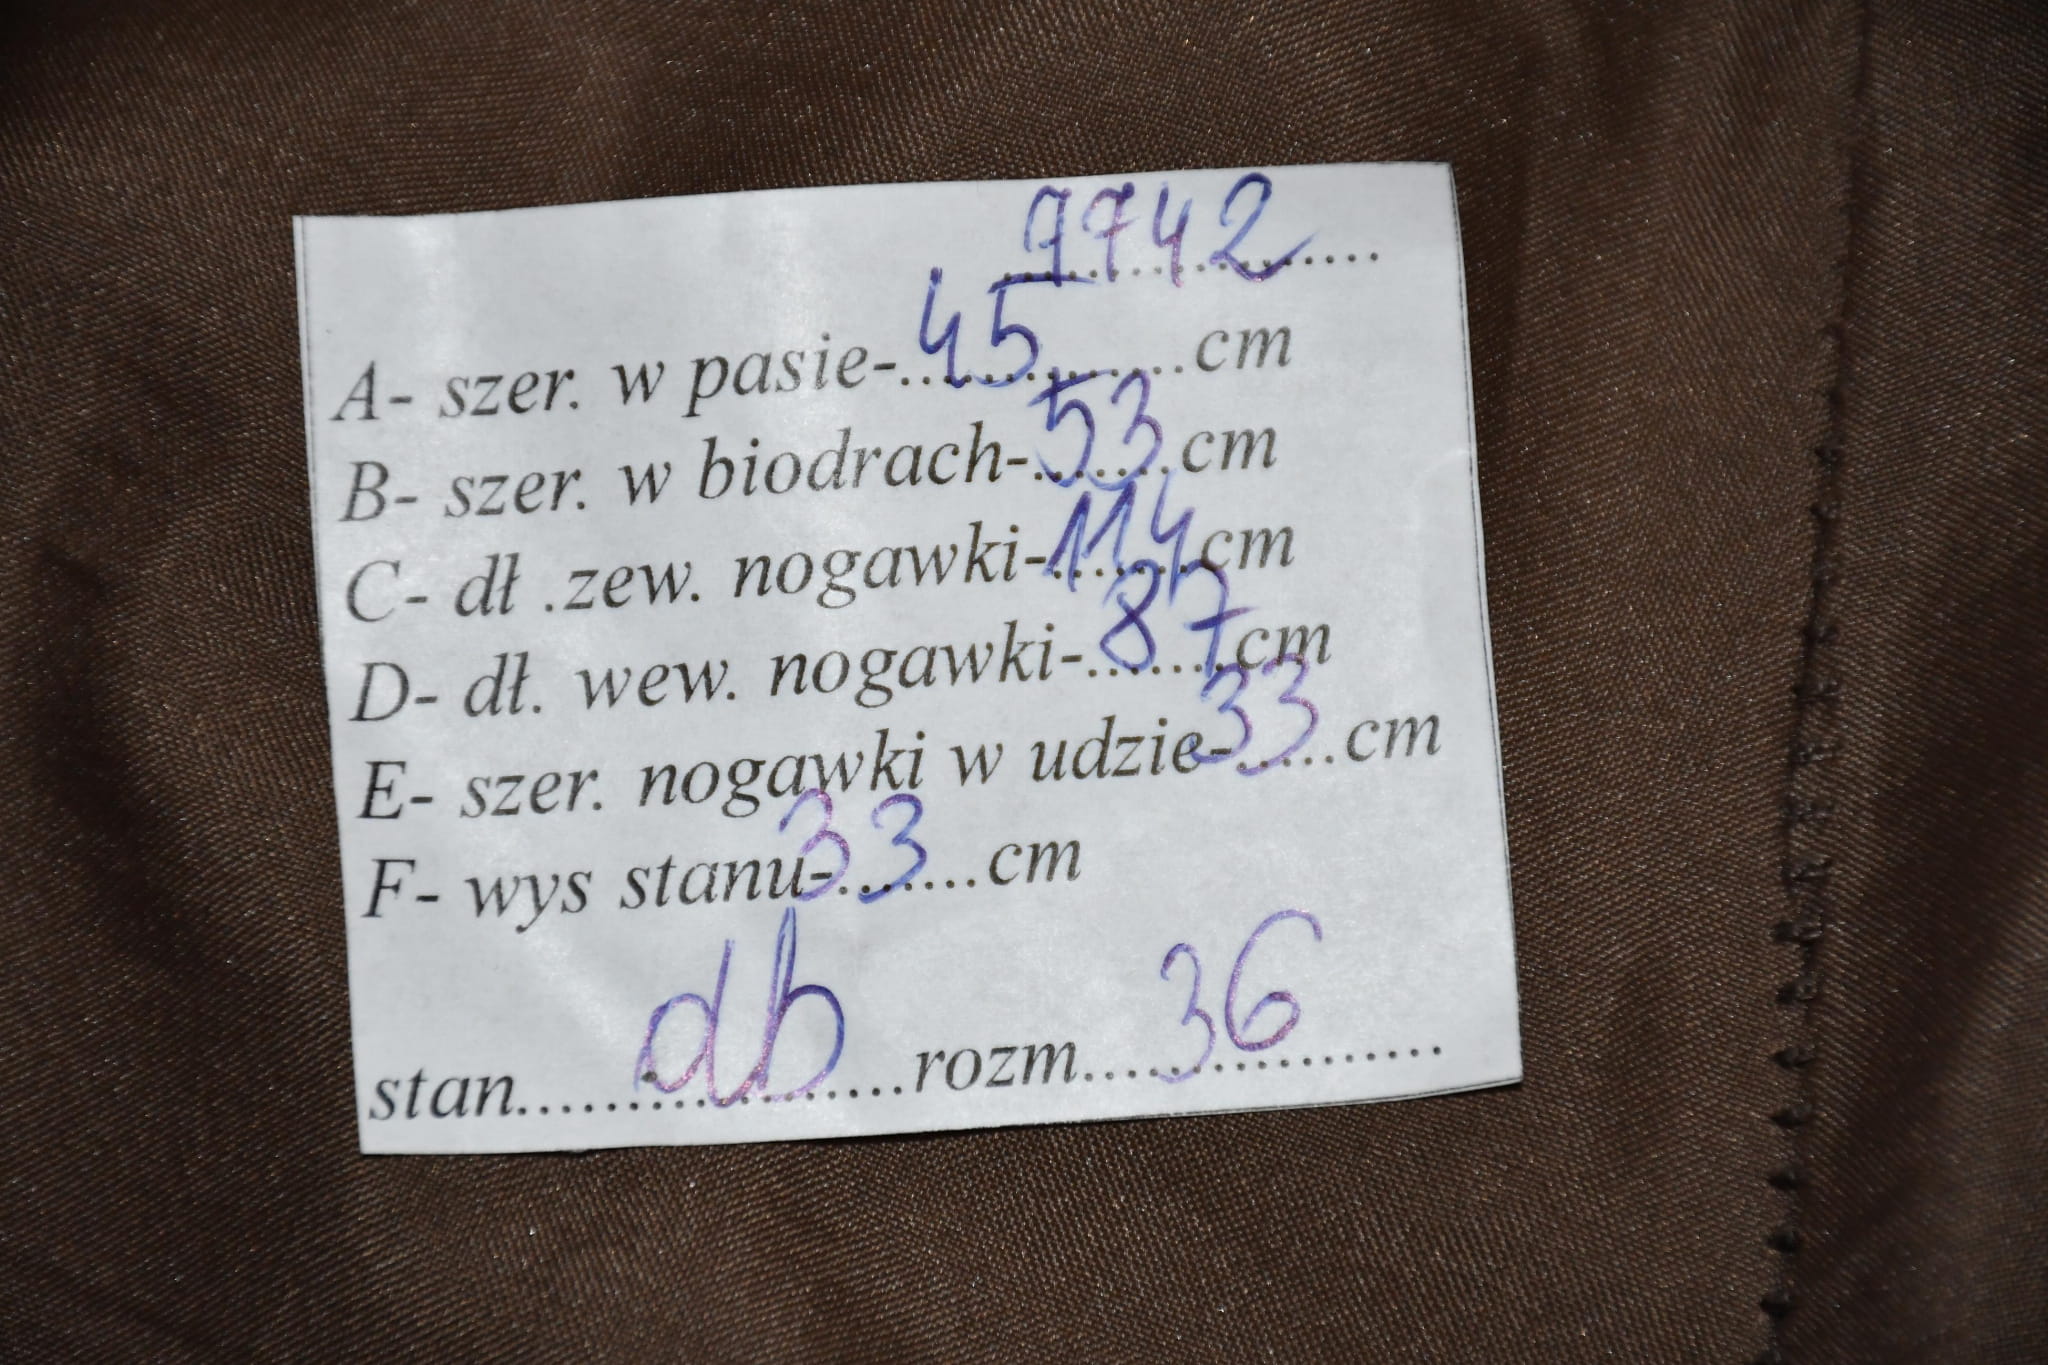 7742
A- szer. w pasie-45..............cm
B- szer. w biodrach-53.......cm
C- dł .zew. nogawki-114.......cm
D- dł. wew. nogawki-87.......cm
E- szer. nogawki w udzie-33......cm
F- wys stanu-33.......cm
stan..........db..........rozm......36..........